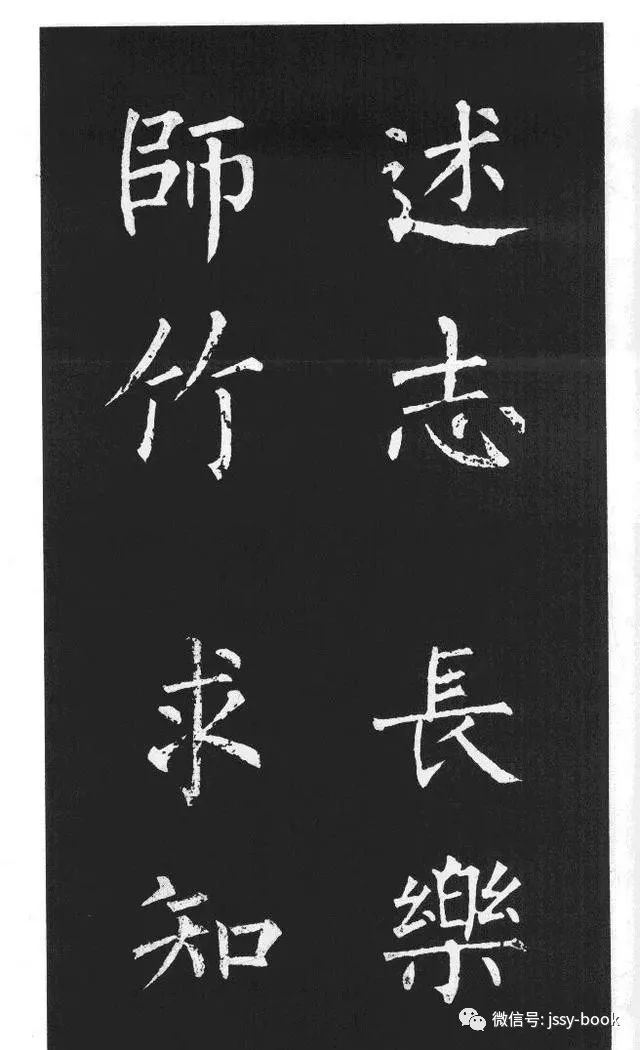 述志長樂
師竹求知
微信号: jssy-book